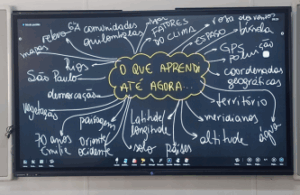 comunidades
quilombolas
FATORES
DO CLIMA
rosa dos ventos
ESPAÇO
GPS
relevo
mapas
rios
São Paulo
demarcação
vegetação
paisagem
70 anos
Oriente
ocidente
latitude
longitude
solo
países
altitude
meridianos
território
coordenadas
geográficas
água
O QUE APRENDI
ATÉ AGORA...